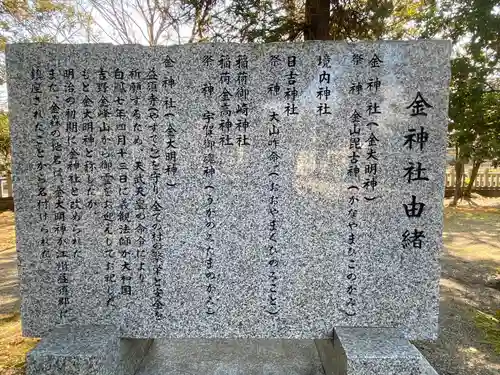 金神社由緒
金神社（金大明神）
祭　神　金山毘古神（かなやまひこのかみ）
境内神社
日吉神社
祭　神　大山咋命（おおやまくひのみこと）
稲荷御崎神社
稲荷金高神社
祭　神　宇賀御魂神（うかのみたまのかみ）
金神社（金大明神）
を守り、全ての
祈願するため、天武天皇の命令により
白鳳七年四月十二日に義観法師が大和国
吉野金峰山から御霊をお迎えしてお祀りした
もと金大明神と称したが
明治の初期に金神社と改められた
また、金森の地名は、金大明神が江州益須郡に
鎮座されたことから名付けられた